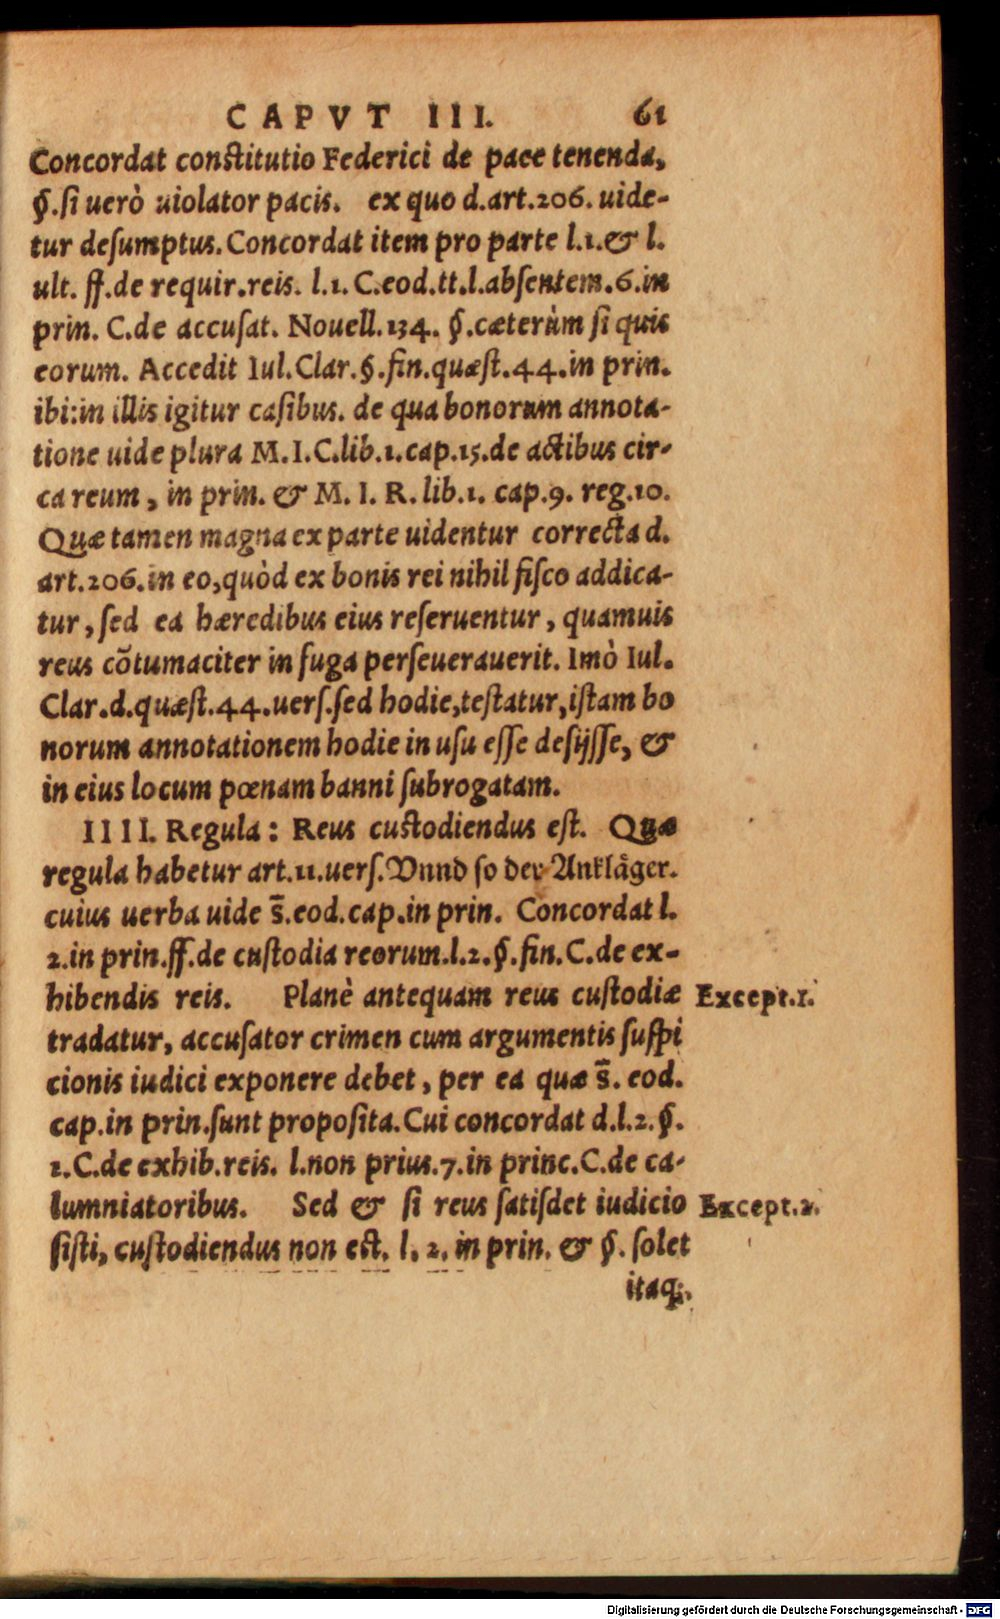 CAPVT III. 61
Concordat constitutio Federici de pace tenenda,
§.si uerò uiolator pacis. ex quo d.art.206. uide-
tur desumptus. Concordat item pro parte l.1.& l.
ult. ff.de requir.reis. l.1. C.eod.tt.l.absentem.6.in
prin. C.de accusat. Nouell.134. §.cæterùm si quis
eorum. Accedit Iul.Clar.§.fin.quæst.44.in prin.
ibi:in illis igitur casibus. de qua bonorum annota-
tione uide plura M.I.C.lib.1.cap.15.de actibus cir-
ca reum, in prin. & M. I. R. lib.1. cap.9. reg.10.
Quæ tamen magna ex parte uidentur correcta d.
art.206.in eo,quòd ex bonis rei nihil fisco addica-
tur, sed ea hæredibus eius reseruentur, quamuis
reus cõtumaciter in fuga perseuerauerit. Imò Iul.
Clar.d.quæst.44.uers.sed hodie,testatur,istam bo
norum annotationem hodie in usu esse desijsse, &
in eius locum pœnam banni subrogatam.
IIII. Regula: Reus custodiendus est. Quæ
regula habetur art.11.uers.Vnnd so der Ankläger.
cuius uerba uide s̄.eod.cap.in prin. Concordat l.
2.in prin.ff.de custodia reorum.l.2.§.fin.C.de ex-
hibendis reis. Planè antequam reus custodiæ Except.1.
tradatur, accusator crimen cum argumentis suspi
cionis iudici exponere debet, per ea quæ s̄. eod.
cap.in prin.sunt proposita.Cui concordat d.l.2.§.
1.C.de exhib.reis. l.non prius.7.in princ.C.de ca-
lumniatoribus. Sed & si reus satisdet iudicio Except.2.
sisti, custodiendus non est. l. 2. in prin. & §. solet
itaq;,
Digitalisierung gefördert durch die Deutsche Forschungsgemeinschaft - DFG